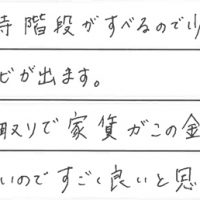 時階段がすべるので
ビが出ます。
取りで家賃がこの金
いのですごく良いと思